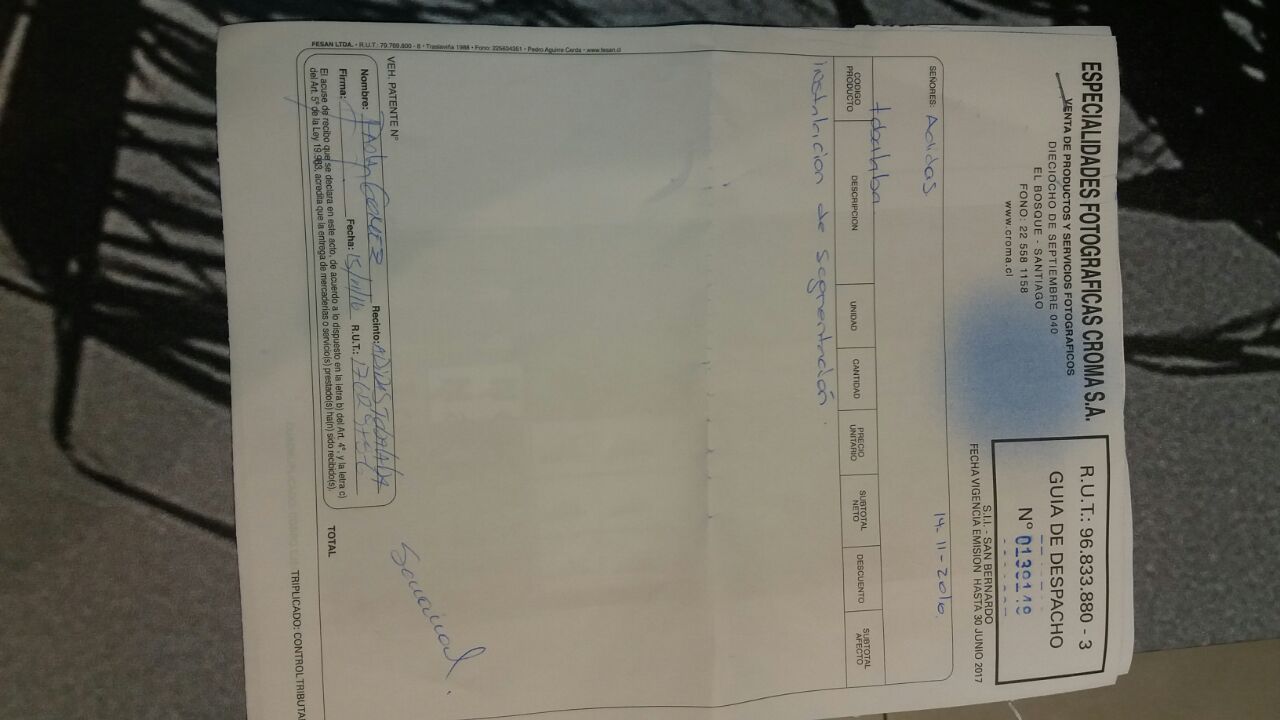 ESPECIALIDADES FOTOGRAFICAS CROMA S.A.
VENTA DE PRODUCTOS Y SERVICIOS FOTOGRAFICOS
DIECIOCHO DE SEPTIEMBRE 040
EL BOSQUE - SANTIAGO
FONO: 22 558 1158
www.croma.cl
R.U.T.: 96.833.880 - 3
GUIA DE DESPACHO
Nº 0139149
S.I.I. - SAN BERNARDO
FECHA VIGENCIA EMISION HASTA 30 JUNIO 2017
SEÑORES: Adidas 14-11-2016.
tobalaba
CODIGO PRODUCTO DESCRIPCION UNIDAD CANTIDAD PRECIO UNITARIO SUBTOTAL NETO DESCUENTO SUBTOTAL AFECTO
instalacion de segmentación
Semanal.
VEH. PATENTE Nº
Nombre: Paola GOMEZ Recinto: ADIDAS TOBALABA
Firma: Fecha: 15/11/16 R.U.T.:
El acuse de recibo que se declara en este acto, de acuerdo a lo dispuesto en la letra b) del Art. 4º, y la letra c)
del Art. 5º de la Ley 19.983, acredita que la entrega de mercaderías o servicio(s) prestado(s) ha(n) sido recibido(s).
TOTAL
TRIPLICADO: CONTROL TRIBUTA